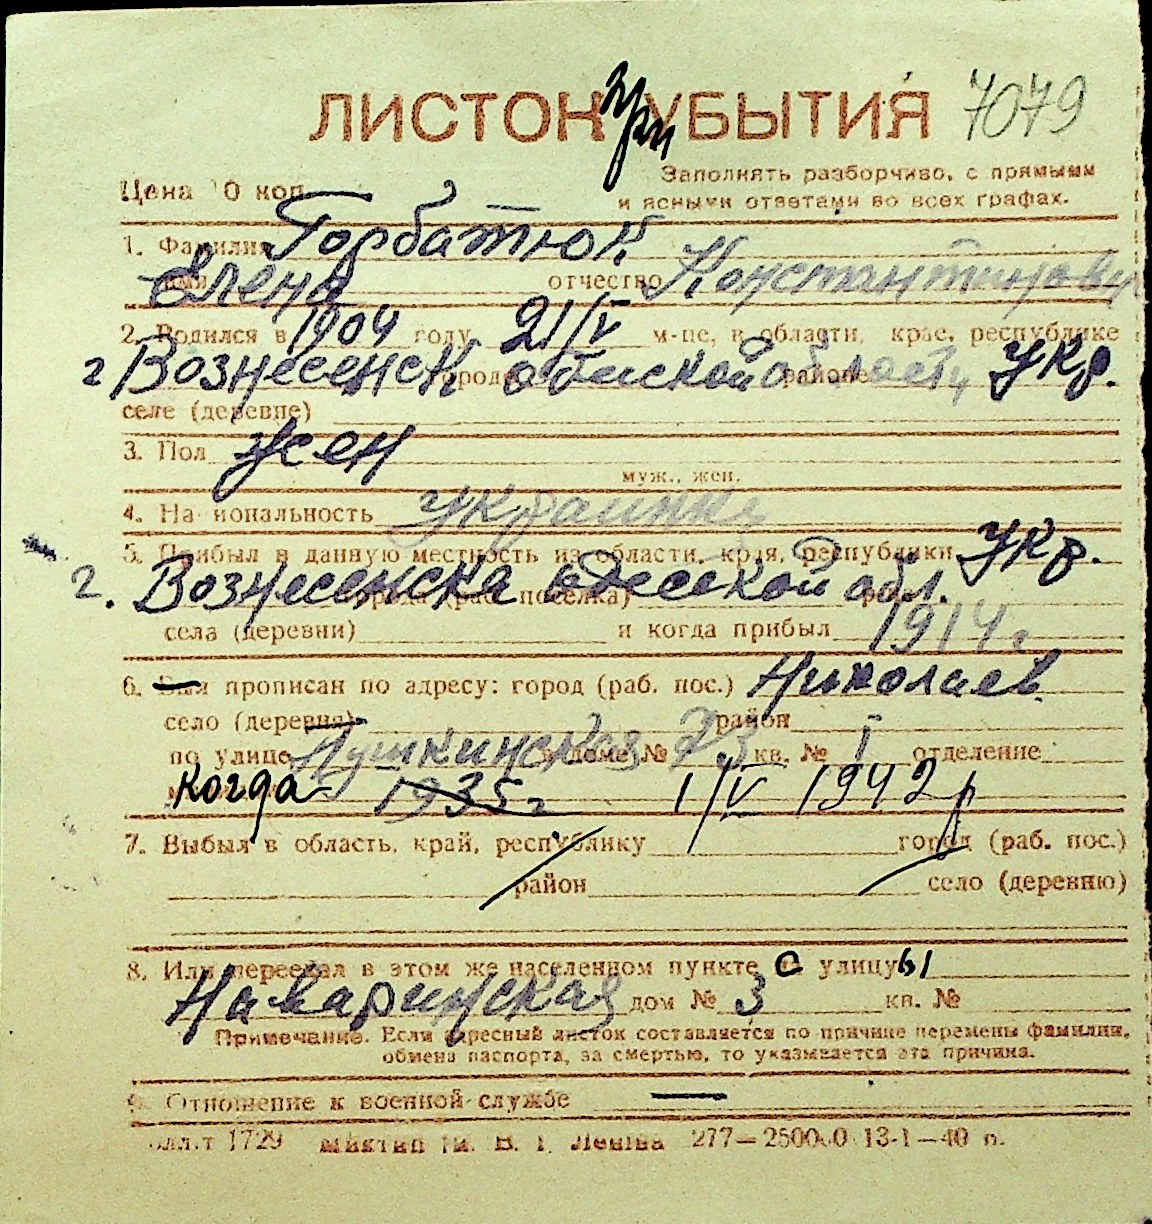 ЛИСТОК при УБЫТИЯ 7079
Цена 10 коп.
Заполнять разборчиво, с прямыми
и ясными ответами во всех графах.
1. Фамилия Горбатюк
имя Елена отчество Константиновн
2. Родился в 1904 году 21/V м-це, в области, крае, республике
г Вознесенск одесской области Укр.
городе районе
селе (деревне)
3. Пол жен
муж., жен.
4. Национальность украинка
5. Прибыл в данную местность из области, края, республики Укр.
г. Вознесенска одесской обл.
города (раб. поселка)
села (деревни) и когда прибыл 1914 г
6. Был прописан по адресу: город (раб. пос.) Николаев
село (деревня) район
по улице Пушкинская в доме № 73 кв. № 1 отделение
когда 1935 г 1/IV 1942 г
7. Выбыл в область, край, республику город (раб. пос.)
район село (деревню)
8. Или переехал в этом же населенном пункте с улицы
Наваринская дом № 3 кв. №
Примечание. Если адресный листок составляется по причине перемены фамилии,
обмена паспорта, за смертью, то указывается эта причина.
9. Отношение к военной службе —
1729 В. І. Леніна 277—250000 13-1—40 р.